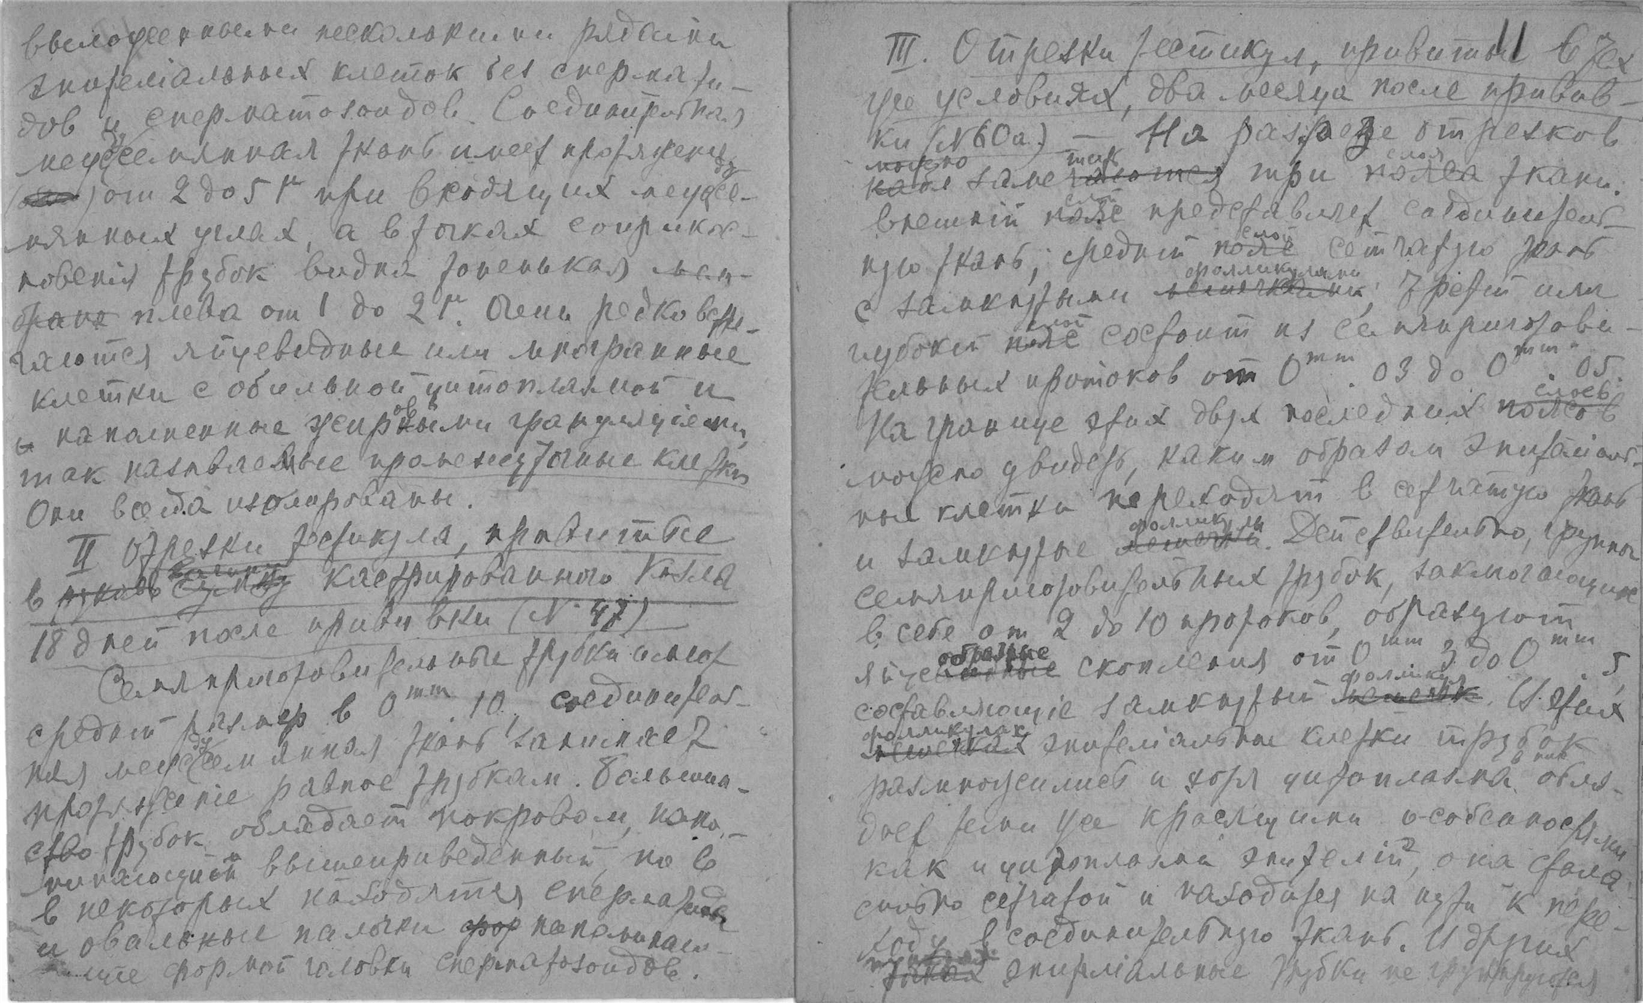 выложенными несколькими рядами
эпителіальных клеток без спермати-
дов и сперматозоидов. Соединительная
междусемянная ткань имеет протяжение
от 2 до 5 μ при входящих междусе-
мянных углах, а в точках соприкос-
новенія трубок видна тоненькая
плева от 1 до 2 μ. Очень редко встре-
чаются яйцевидные или многранные
клетки с обильной цитоплазмой и
наполненные жировыми грануляціями,
так называемые промежуточные клетки
Они всегда изолированы.
II Отрезки тестикула, привитые
в мошонку кастрированного козла
18 дней после прививки (№ 47)
Семяприготовительные трубки имеют
средній размер в 0mm 10, соединитель-
ная междусемянная ткань занимает
протяженіе равное трубкам. Большин-
ство трубок обладает покровом, напо-
минающій вышеприведенный, но в
в некоторых находятся сперматиды
и овальные палочки напоминаю-
щие формой головки сперматозоидов.
III. Отрезки тестикул, привитые в тех 11
же условиях, два месяца после привив-
ки (№ 60а) — На разрезе отрезков
можно заметить три слоя ткани.
Внешній слой представляет соединитель-
ную ткань; средній слой сетчатую ткань
с замкнутыми фолликулами; третій или
глубокій слой состоит из семяприготови-
тельных протоков от 0mm 03 до 0mm 05.
На границе этих двух последних слоев
можно увидеть, каким образом эпителіаль-
ные клетки переходят в сетчатую ткань
и замкнутые фолликулы. Действительно, группы
семяприготовительных трубок, заключающие
в себе от 2 до 10 протоков, образуют
яйцеобразные скопления от 0mm 3 до 0mm 5,
составляющіе замкнутый фолликул. В этих
фолликулах эпителіальные клетки трубок
размножились и хотя цитоплазма в них обла-
дает теми же красящими особенностями
как и цитоплазма эпителій, она стала
сильно сетчатой и находится на пути к пере-
ходу в соединительную ткань. В других
эпителіальные трубки не группируются